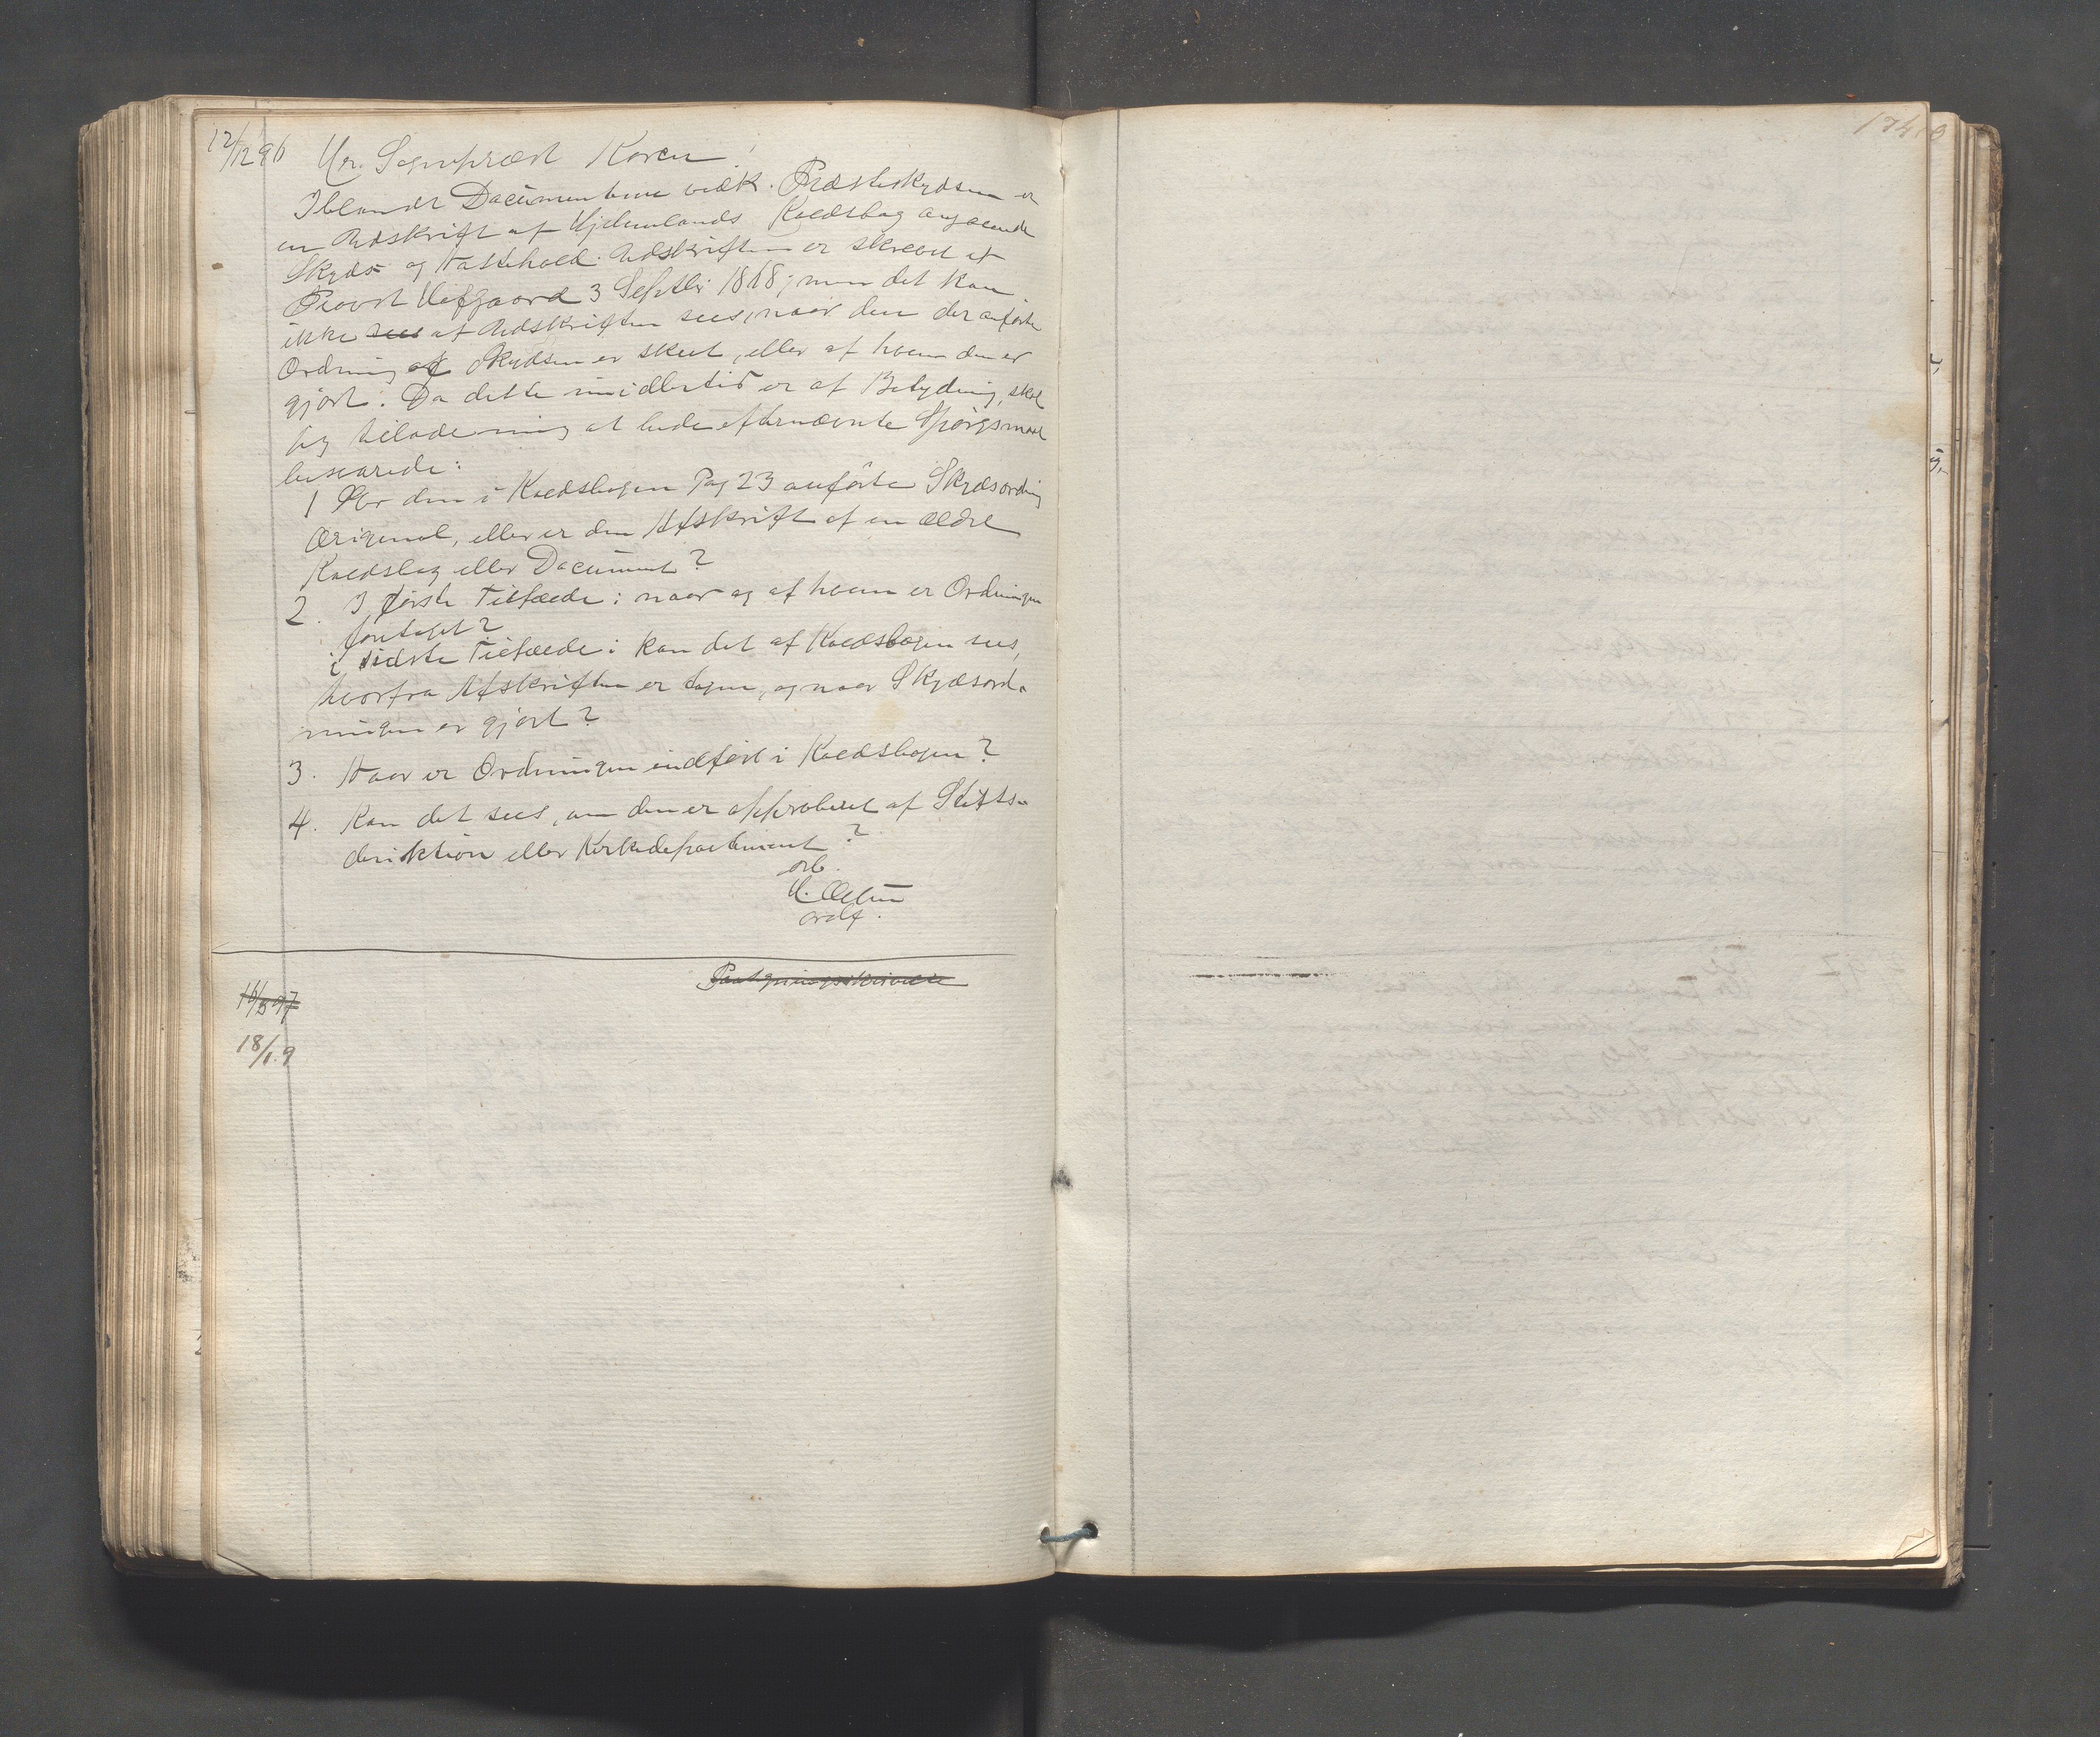 12/12 96 Hr. Sognepræst Koren!
Iblandt Documenterne vedk. Præsteskydsen er
en Udskrift af Hjelmelands Kaldsbog angaaende
Skyds og Hestehold. Udskriften er skrevet af
Provst Hofgaard 3 Septbr 1868; men det kan
ikke sees af Udskriften sees, naar den der anførte
Ordning af Skydsen er skeet, eller af hvem den er
gjort. Da dette imidlertid er af Betydning, skal
jeg tillade mig at bede efternævnte Spørgsmaal
besvarede:
1 Er den i Kaldsbogen Pag 23 anførte Skydsordning
Original, eller er den Afskrift af en ældre
Kaldsbog eller Document?
2. I første Tilfælde: naar og af hvem er Ordningen
foretaget?
i sidste Tilfælde: kan det af Kaldsbogen sees,
hvorfra Afskriften er tagen, og naar Skydsord-
ningen er gjort?
3. Naar er Ordningen indført i Kaldsbogen?
4. Kan det sees, om den er approberet af Stifts-
direktion eller Kirkedepartement?
Erb.
H.
ordf.
16/3 97 Paategningsskrivelse
18/1.9
174